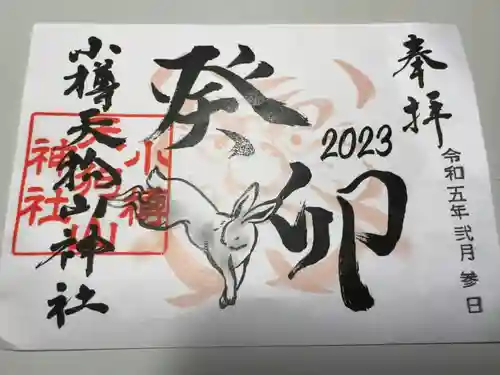 奉拝
令和五年 弐月 参日
2023
癸
卯
小樽天狗山神社
小樽
天狗山
神社